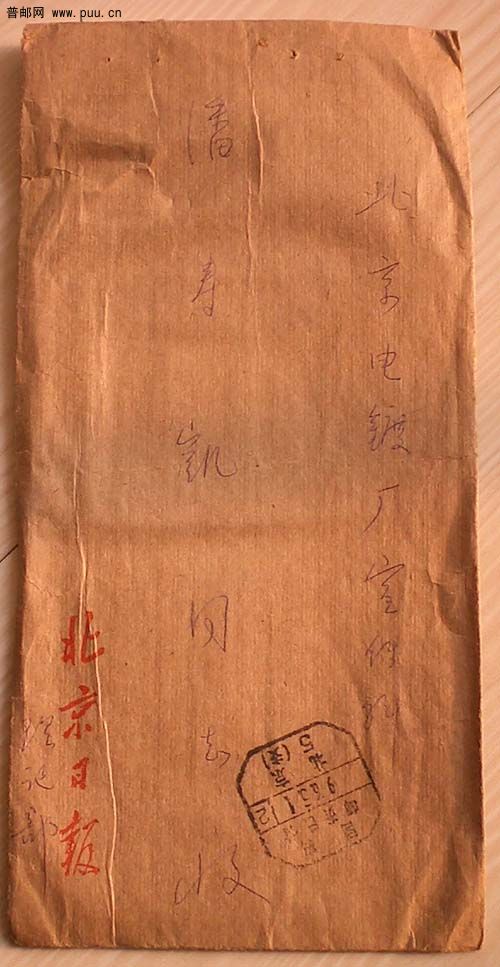 普邮网 www.puu.cn
北京电镀厂宣传科
潘寿凯同志收
北京日报
理论部